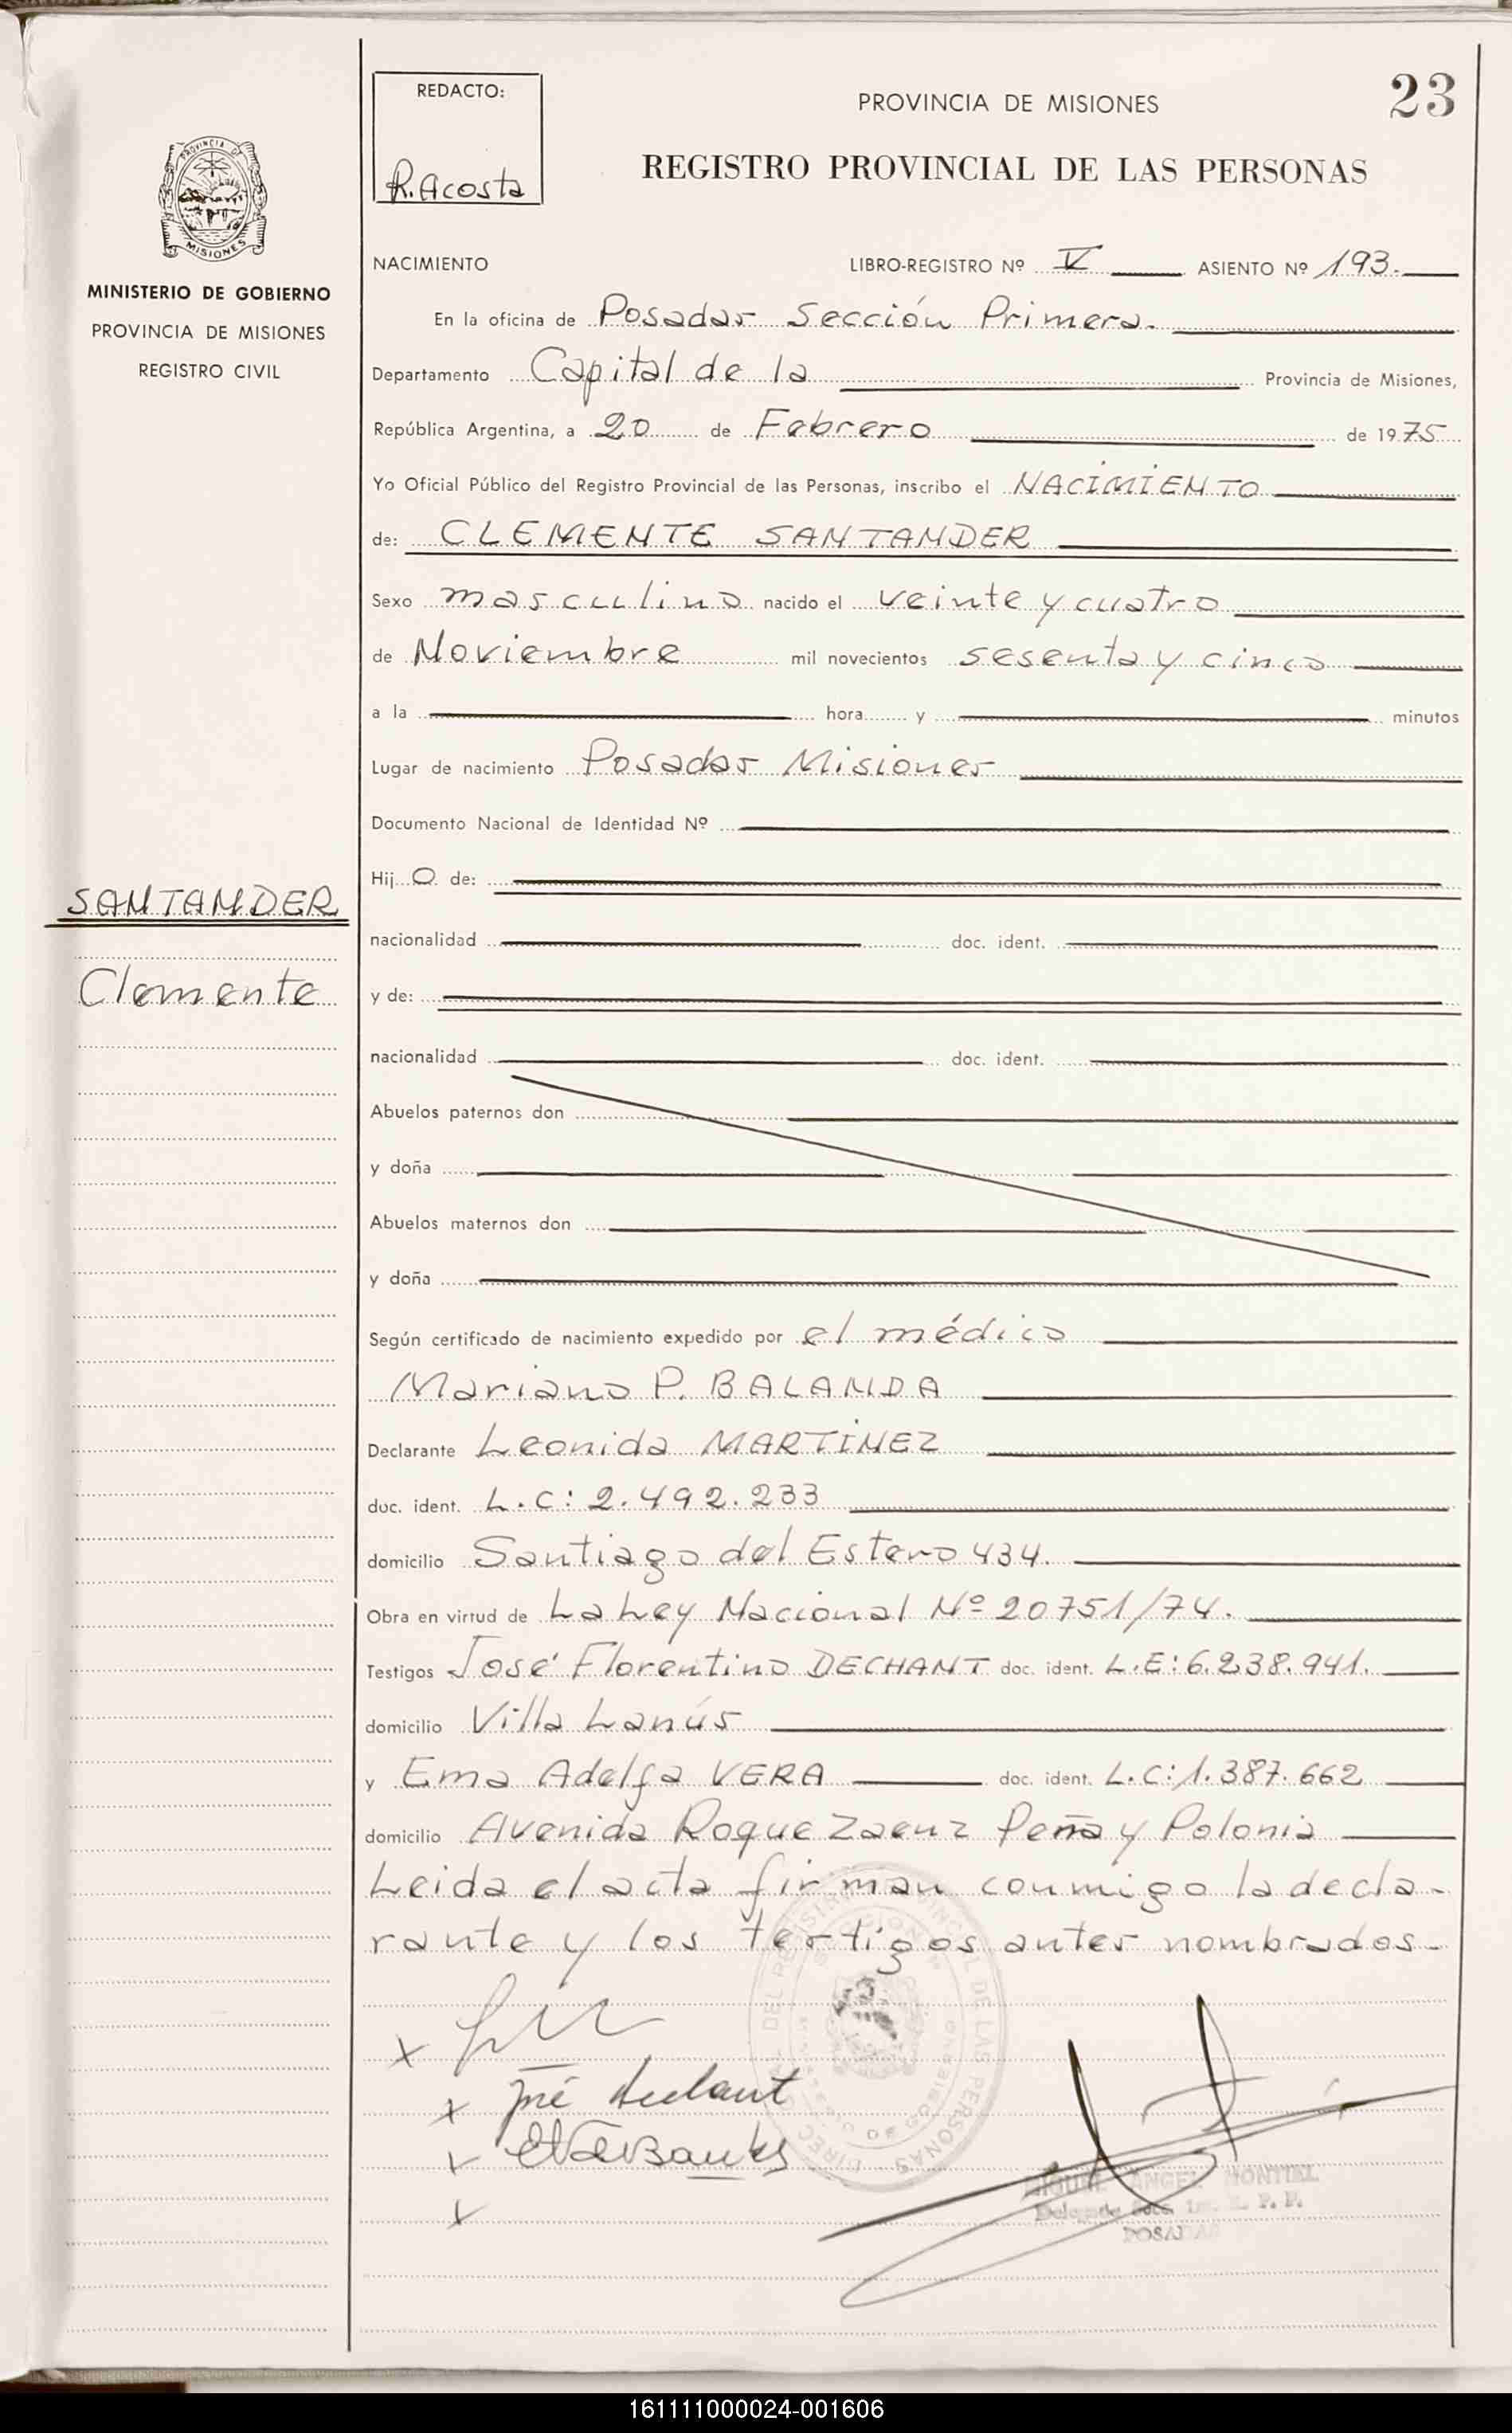 REDACTO:
R. Acosta
PROVINCIA DE MISIONES
23
REGISTRO PROVINCIAL DE LAS PERSONAS
PROVINCIA DE
MISIONES
MINISTERIO DE GOBIERNO
PROVINCIA DE MISIONES
REGISTRO CIVIL
NACIMIENTO LIBRO-REGISTRO Nº V ASIENTO Nº 193.
En la oficina de Posadas Sección Primera.
Departamento Capital de la Provincia de Misiones,
República Argentina, a 20 de Febrero de 1975
Yo Oficial Público del Registro Provincial de las Personas, inscribo el NACIMIENTO
de: CLEMENTE SANTANDER
Sexo masculino nacido el veinte y cuatro
de Noviembre mil novecientos sesenta y cinco
a la hora y minutos
Lugar de nacimiento Posadas Misiones
Documento Nacional de Identidad Nº
Hij O de:
SANTANDER
nacionalidad doc. ident.
Clemente
y de:
nacionalidad doc. ident.
Abuelos paternos don
y doña
Abuelos maternos don
y doña
Según certificado de nacimiento expedido por el médico
Mariano P. BALANDA
Declarante Leonida MARTINEZ
doc. ident. L.C: 2.492.233
domicilio Santiago del Estero 434.
Obra en virtud de La Ley Nacional Nº 20751/74.
Testigos José Florentino DECHANT doc. ident. L.E: 6.238.941.
domicilio Villa Lanús
y Ema Adelfa VERA doc. ident. L.C: 1.387.662
domicilio Avenida Roque Zaenz Peña y Polonia
Leida el acta firman conmigo la decla-
rante y los testigos antes nombrados.
José Dechant
MIGUEL ANGEL MONTIEL
POSADAS
161111000024-001606